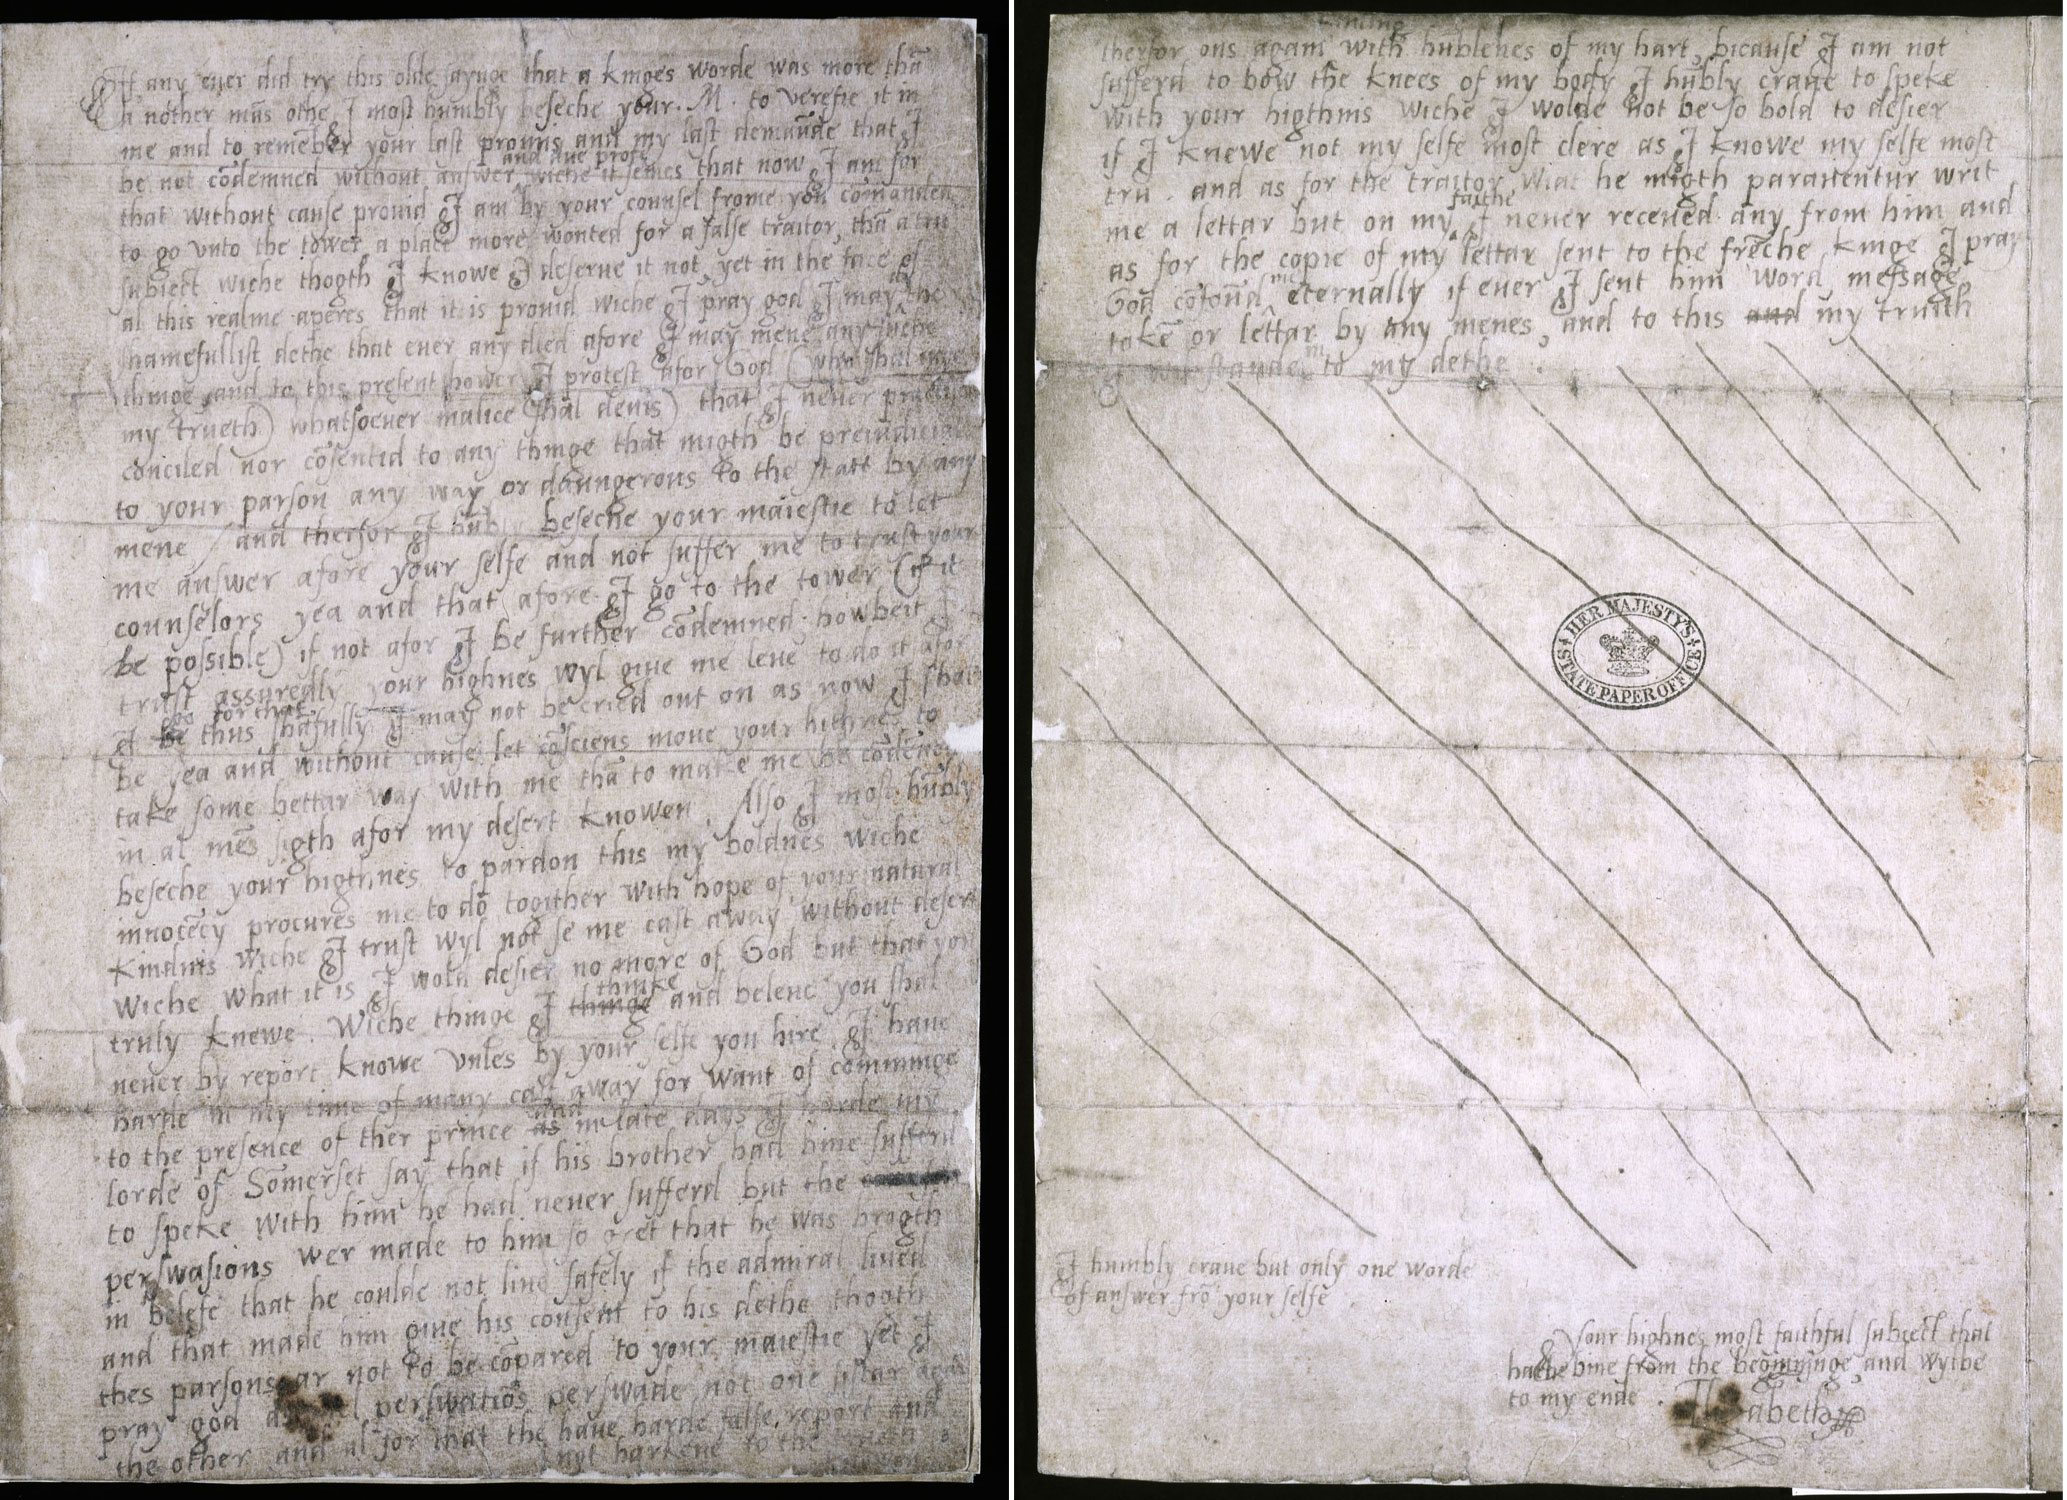 If any euer did try this olde sayinge that a kinges worde was more thā
a nother mās othe I most humbly beseche your. M. to verefie it in
me and to remēber your last promis and my last demaūde that I
be not cōdemned without answer and due profe wiche it semes that now I am for
that without cause prouid I am by your counsel frome you comanded
to go vnto the tower a place more wonted for a false traitor, thā a tru
subiect wiche thogth I knowe I deserue it not, yet in the face of
al this realme aperes that it is prouid wiche I pray god I may die the
shamefullist dethe that euer any died afore I may mene any suche
thinge and to this present hower I protest afor God (who shal iuge
my trueth) whatsoeuer malice shal deuis) that I neuer practised
conciled nor cōsentid to any thinge that migth be preiudicial
to your parson any way or daungerous to the statt by any
mene / and therfor I hūbly beseche your maiestie to let
me answer afore your selfe and not suffer me to trust your
counselors yea and that afore I go to the tower (if it
be possible) if not afor I be further cōdemned. howbeit I
trust assuredly your highnes wyl giue me leue to do it afor
I go for that thus shāfully I may not be cried out on as now I shal
be yea and without cause let cōsciens moue your hithnes to
take some bettar way with me thā to make me be cōdemned
in al mēs sigth afor my desert knowen. Also I most hūbly
beseche your higthnes to pardon this my boldnes wiche
innocēcy procures me to do togither with hope of your natural
kindnis wiche I trust wyl not se me cast away without desert
wiche what it is I wold desier no more of God but that you
truly knewe. Wiche thinge I thinge thinke and beleue you shal
neuer by report knowe vnles by your selfe you hire. I haue
harde in my time of many cast away for want of comminge
to the presence of ther prince as and in late days I harde my
lorde of Somerset say that if his brother had bine sufferd
to speke with him he had neuer sufferd but the
perswasions wer made to him so gret that he was brogth
in belefe that he coulde not liue safely if the admiral liued
and that made him giue his consent to his dethe thogth
thes parsons ar not to be cōpared to your maiestie yet I
pray god perswatiōs perswade not one sistar again
the other and al for that the haue harde false report and
not harkene to the
therfor ons again kniling with hūblenes of my hart, bicause I am not
sufferd to bow the knees of my body I hūbly craue to speke
with your higthnis wiche I wolde not be so bold to desier
if I knewe not my selfe most clere as I knowe my selfe most
tru. and as for the traitor Wiat he migth parauentur writ
me a lettar but on my faithe I neuer receued any from him and
as for the copie of my lettar sent to the frēche kinge I pray
God cōfoūd me eternally if euer I sent him word, message,
tokē or lettar by any menes, and to this and my truith
I wil stande in to my dethe.
HER MAJESTY'S
STATE PAPER OFFICE
I humbly craue but only one worde
of answer frō your selfe
Your highnes most faithful subiect that
hathe bine from the beginninge, and wylbe
to my ende.
Elizabeth